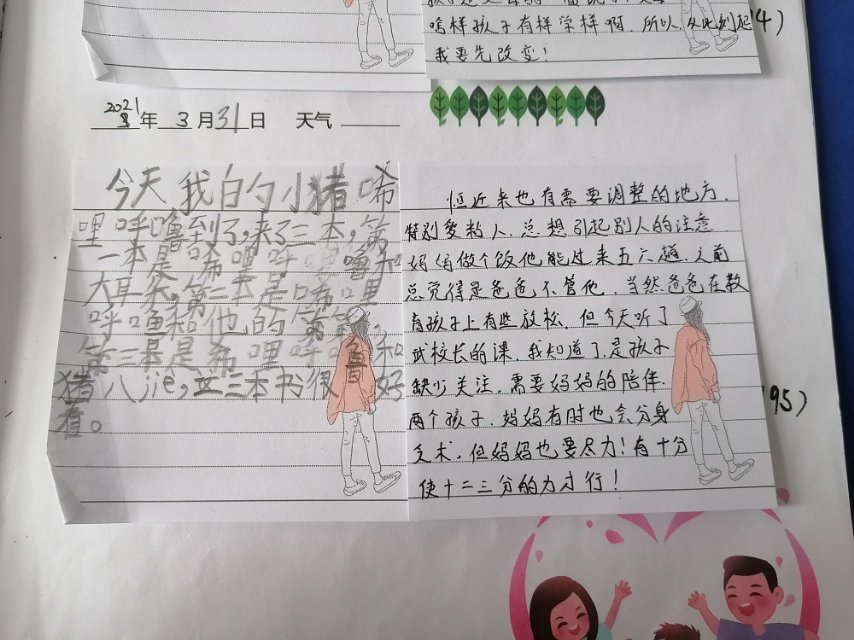 啥样孩子有样学样啊,所以,从此刻起
我要先改变!
4)
2021年 3月31日 天气
今天我的小猪唏
哩呼噜到了,来了三本,第
一本是唏哩呼噜和
大耳朵,第二本是唏哩
呼噜和他的弟弟,
第三本是希哩呼噜和
猪八jie,这三本书很好
看。
恒近来也有需要调整的地方,
特别爱粘人,总想引起别人的注意
妈妈做个饭他能过来五六趟,之前
总觉得是爸爸不管他,当然爸爸在教
育孩子上有些放松,但今天听了
武校长的课,我知道了,是孩子
缺少关注,需要妈妈的陪伴.
两个孩子,妈妈有时也会分身
乏术,但妈妈也要尽力!有十分
使十二三分的力才行!
95)